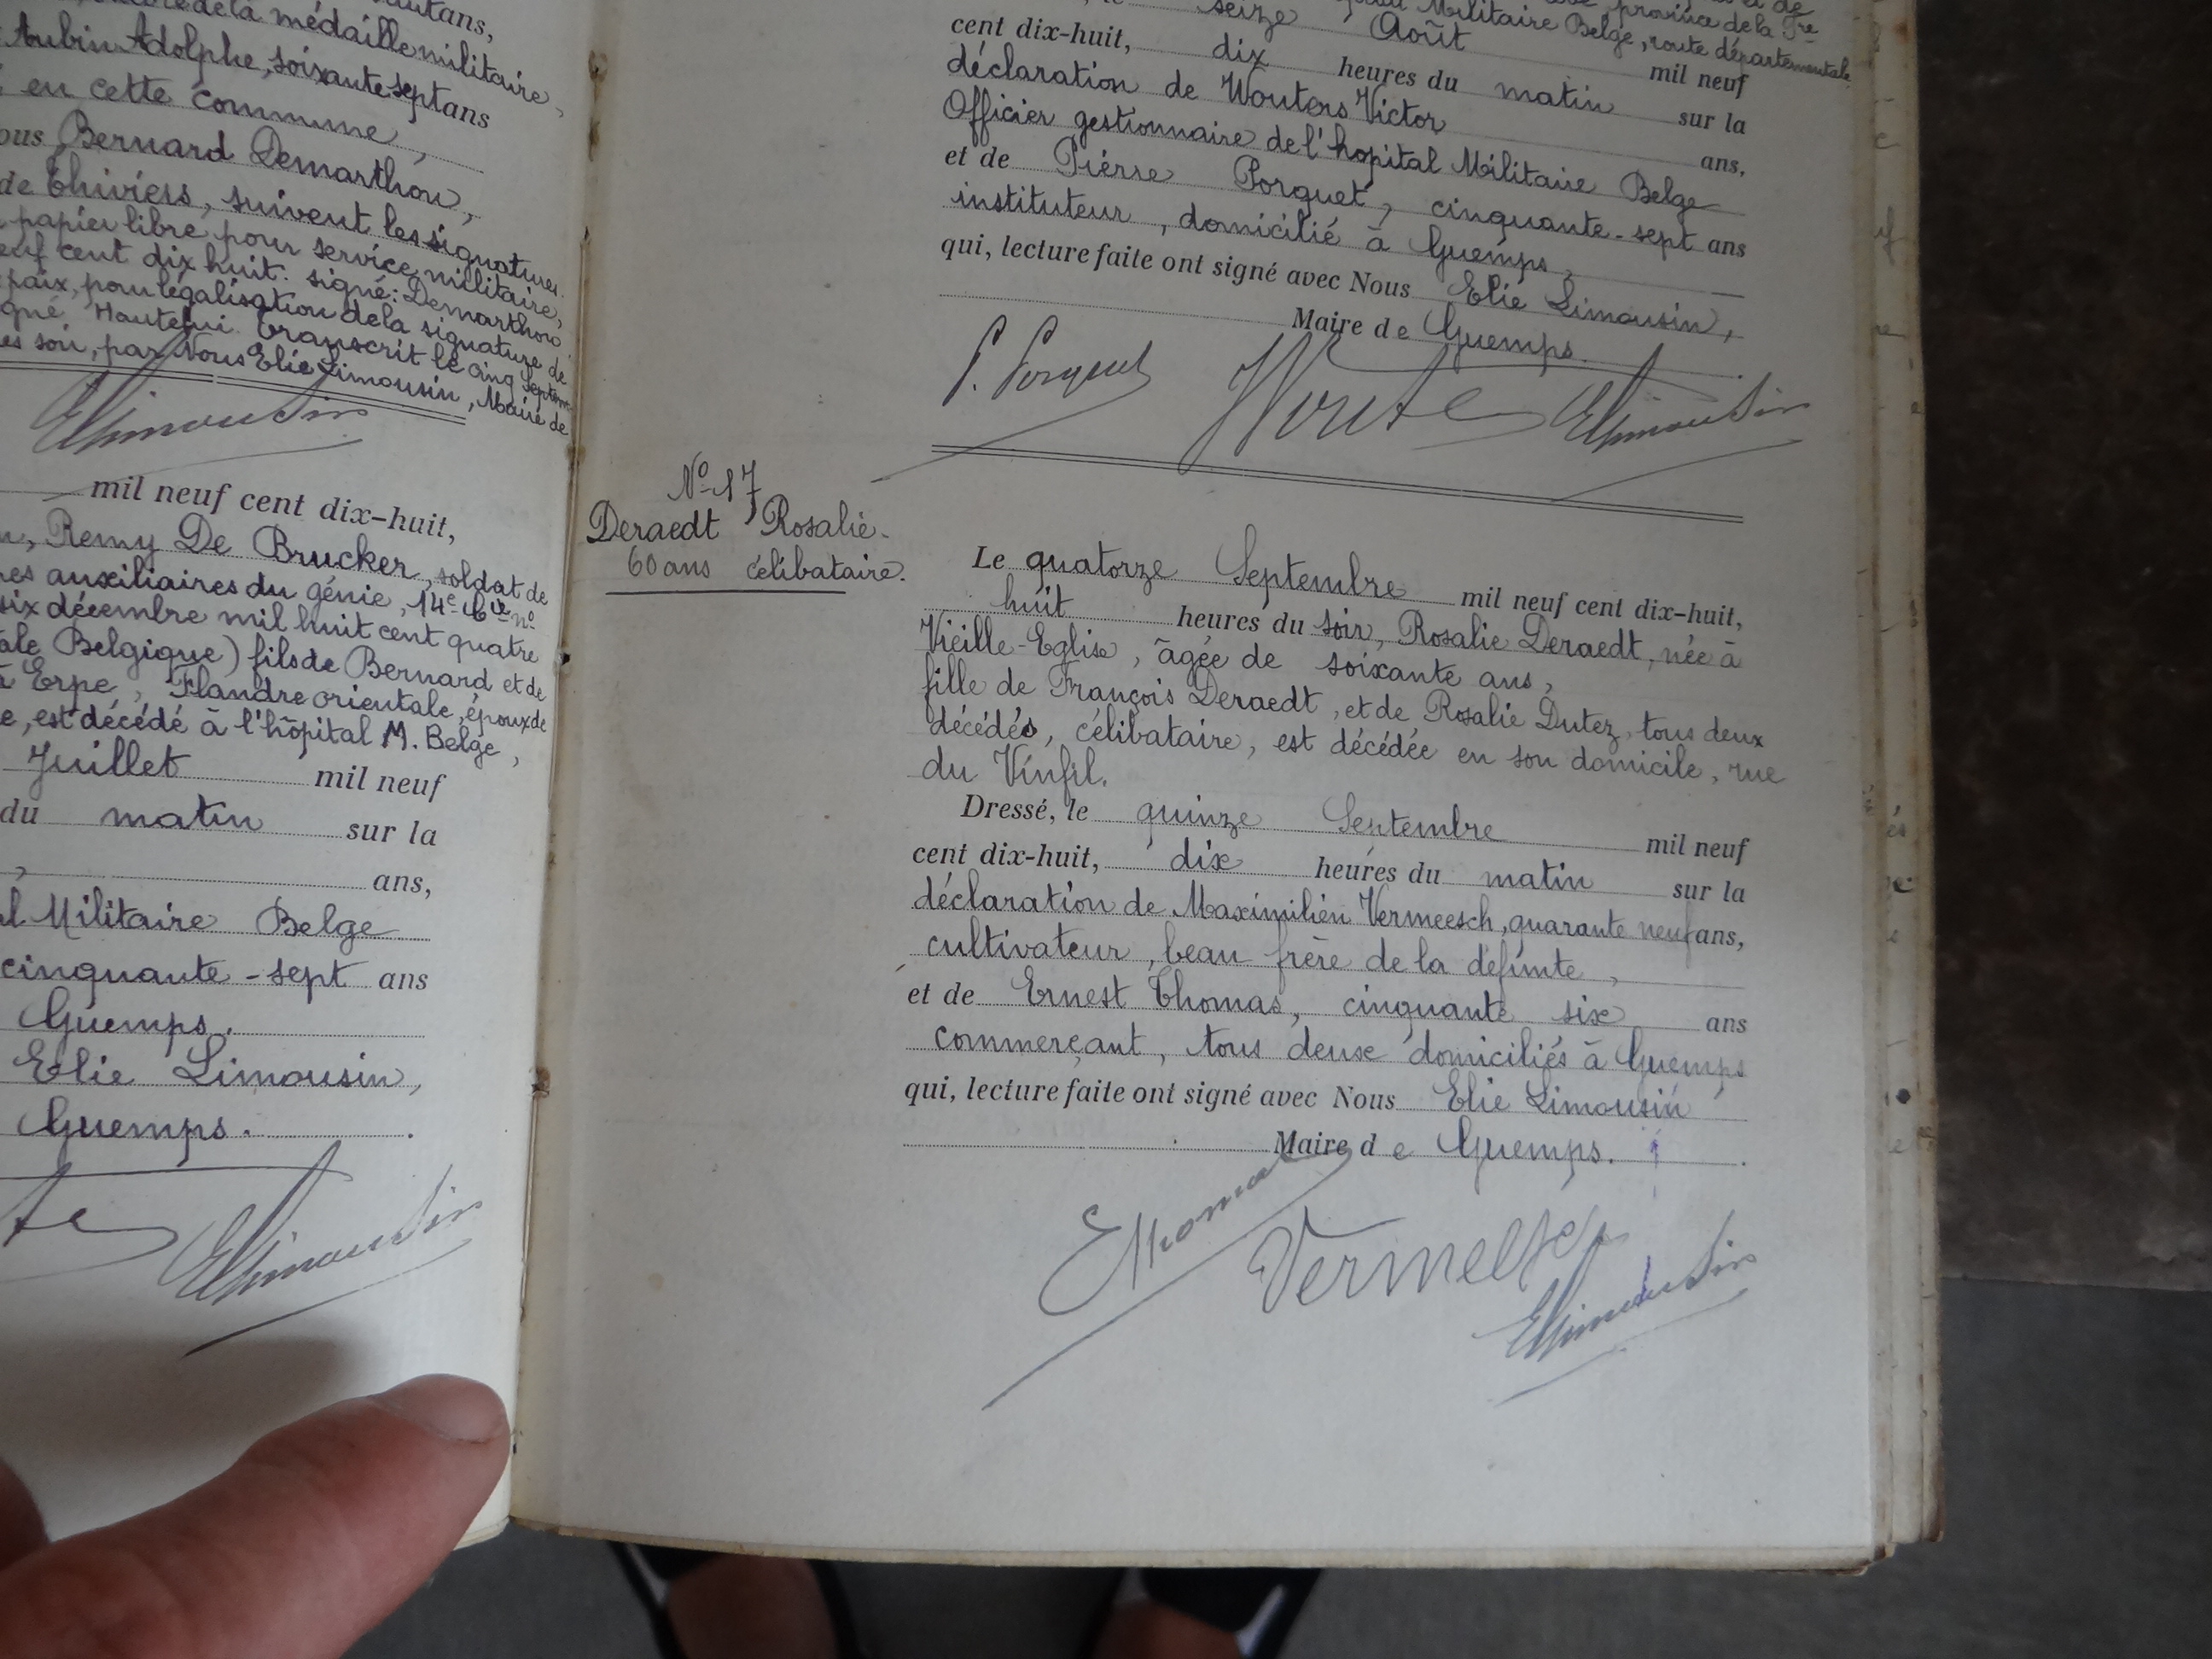 de la médaille militaire,
Aubin Adolphe, soixante sept ans
en cette commune,
Bernard Demarthon,
de Thiviers, suivent les signatures.
papier libre pour service militaire,
cent dix huit. signé: Demarthon
paix, pour légalisation de la signature de
Hautefui. Transcrit le cinq Septem
par Nous Elie Limousin, Maire de
ELimousin
mil neuf cent dix-huit,
Remy De Brucker, soldat de
auxiliaires du génie, 14e Cie no
six décembre mil huit cent quatre
Belgique) fils de Bernard et de
à Erpe, Flandre orientale, époux de
est décédé à l'hôpital M. Belge,
Juillet mil neuf
du matin sur la
ans,
Militaire Belge
cinquante-sept ans
Guemps.
Elie Limousin,
Guemps.
ELimousin
province de la Fre
Militaire Belge, route départementale
seize Août mil neuf
cent dix-huit, dix heures du matin sur la
déclaration de Wouters Victor ans,
Officier gestionnaire de l'hopital Militaire Belge
et de Pierre Porquet, cinquante-sept ans
instituteur, domicilié à Guemps,
qui, lecture faite ont signé avec Nous Elie Limousin,
Maire de Guemps.
P. Porquet ELimousin
No 17
Deraedt Rosalie.
60 ans célibataire.
Le quatorze Septembre mil neuf cent dix-huit,
huit heures du soir, Rosalie Deraedt, née à
Vieille-Eglise, âgée de soixante ans,
fille de François Deraedt, et de Rosalie Dutez, tous deux
décédés, célibataire, est décédée en son domicile, rue
du Vinfil.
Dressé, le quinze Septembre mil neuf
cent dix-huit, dix heures du matin sur la
déclaration de Maximilien Vermeesch, quarante neuf ans,
cultivateur, beau frère de la défunte,
et de Ernest Thomas, cinquante six ans
commerçant, tous deux domiciliés à Guemps
qui, lecture faite ont signé avec Nous Elie Limousin
Maire de Guemps.
EThomas
ELimousin